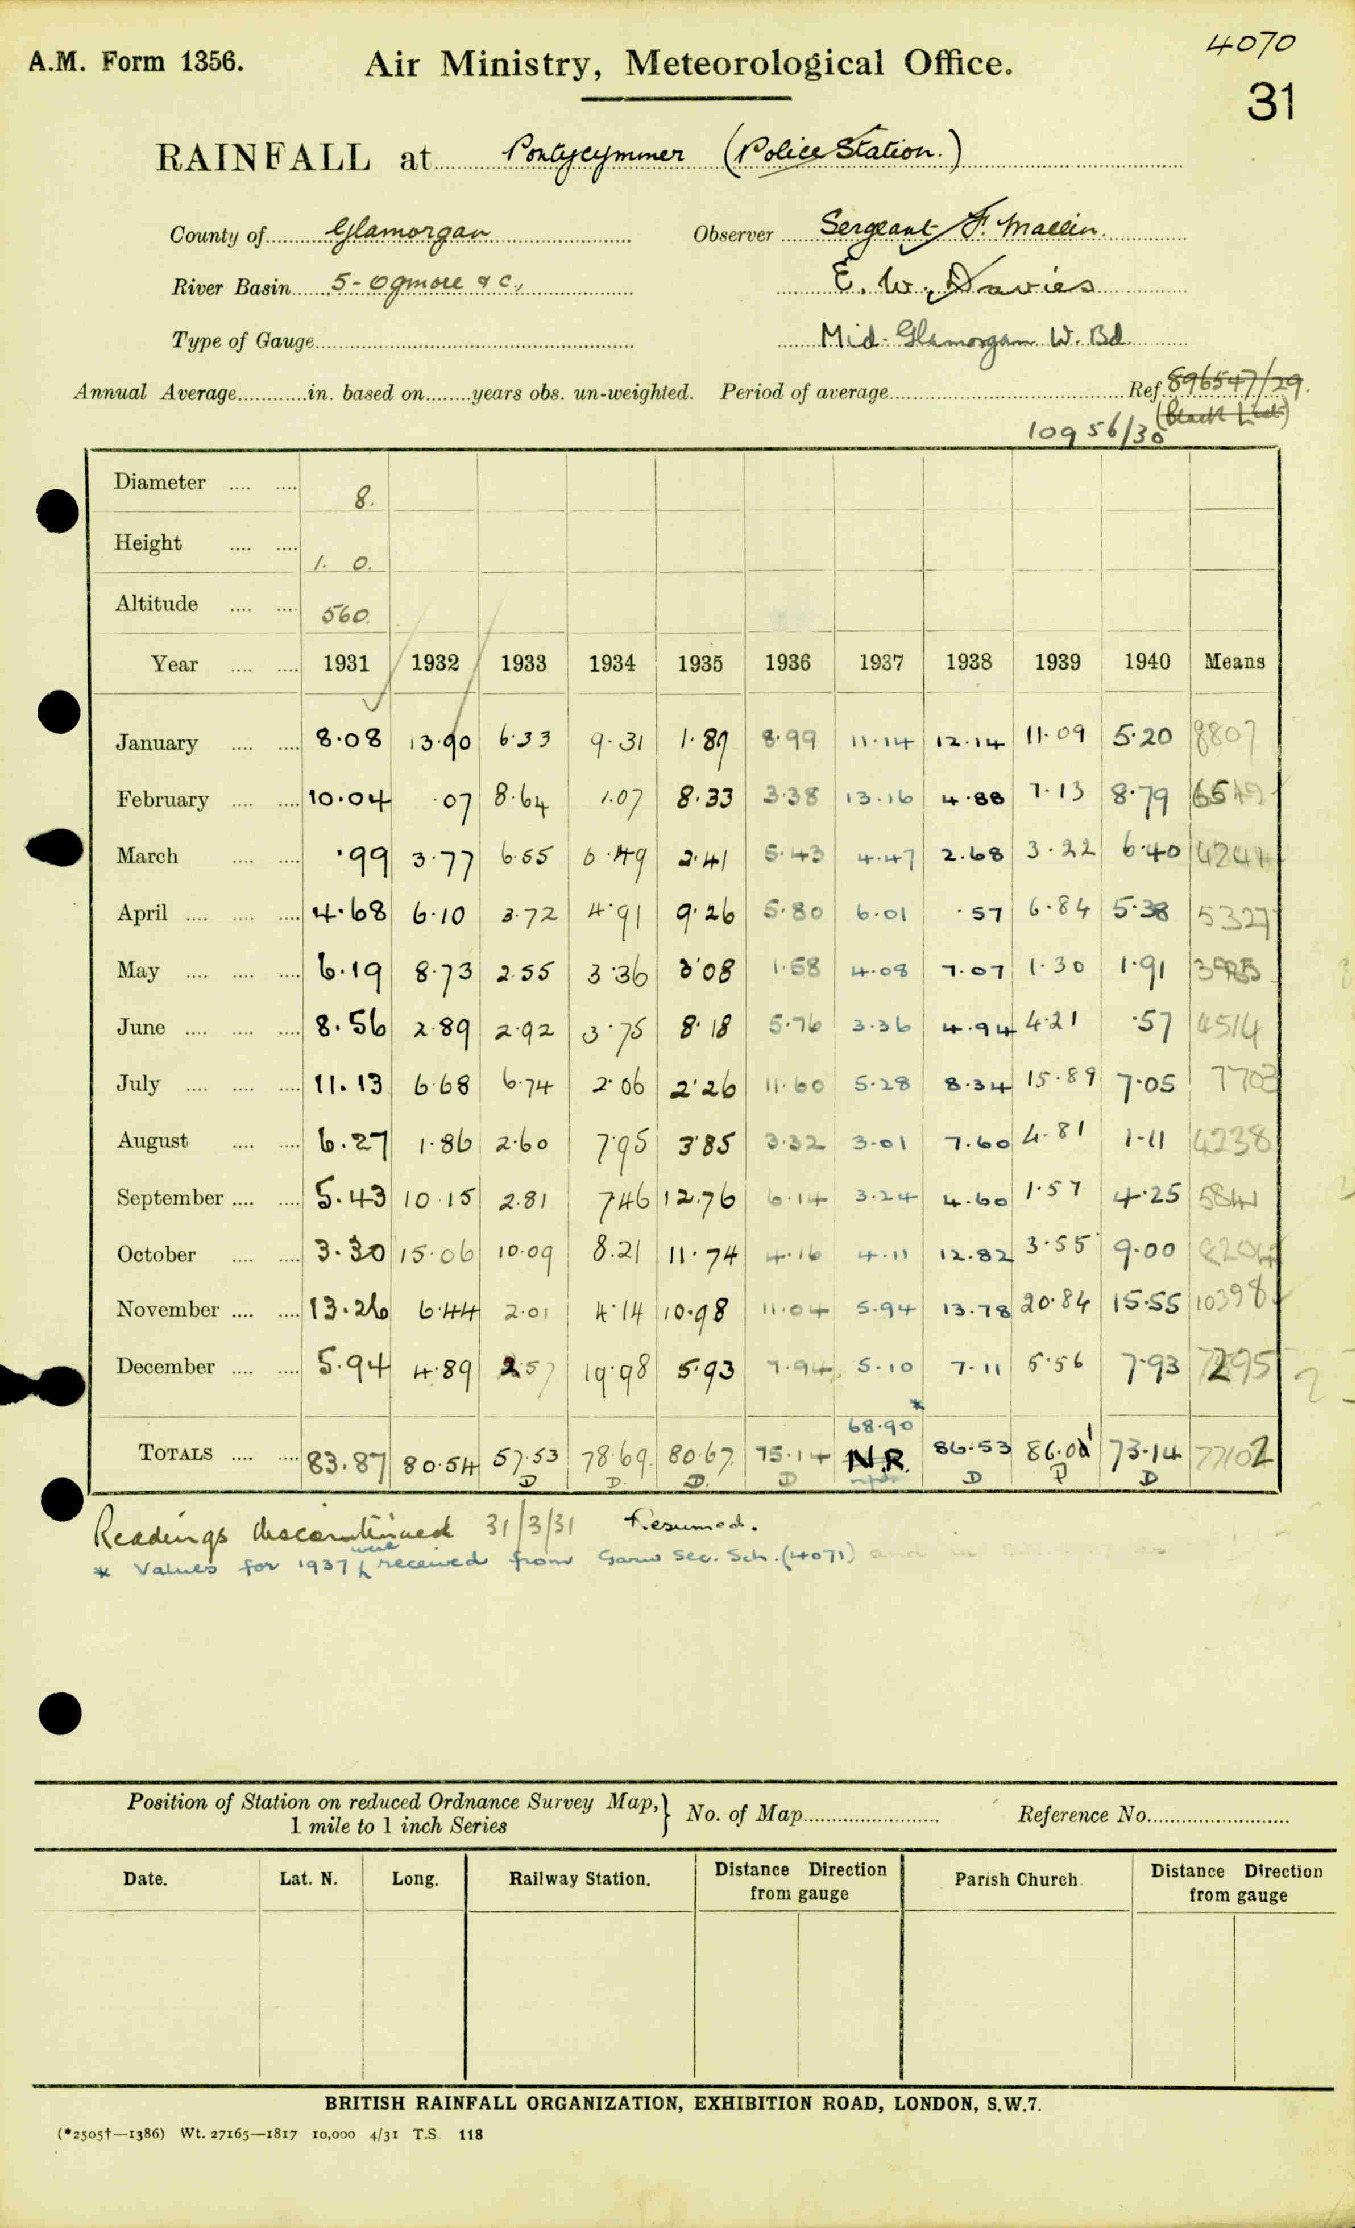 4070
A.M. Form 1356. Air Ministry, Meteorological Office.
31
RAINFALL at Pontycymmer (Police Station.)
County of Glamorgan Observer Sergeant F. Mallin.
River Basin 5 - Ogmore & c., E. W. Davies
Type of Gauge Mid. Glamorgan W. Bd
Annual Average in. based on years obs. un-weighted. Period of average Ref. 896547/29.
(Black List)
10956/30
Diameter 8.
Height 1. 0.
Altitude 560
Year 1931 1932 1933 1934 1935 1936 1937 1938 1939 1940 Means
January 8.08 13.90 6.33 9.31 1.89 8.99 11.14 12.14 11.09 5.20 8807
February 10.04 .07 8.64 1.07 8.33 3.38 13.16 4.88 7.13 8.79 6549
March .99 3.77 6.55 6.49 2.41 5.43 4.47 2.68 3.22 6.40 4241
April 4.68 6.10 3.72 4.91 9.26 5.80 6.01 .57 6.84 5.38 5327
May 6.19 8.73 2.55 3.36 3.08 1.58 4.08 7.07 1.30 1.91
June 8.56 2.89 2.92 3.75 8.18 5.76 3.36 4.94 4.21 .57 4514
July 11.13 6.68 6.74 2.06 2.26 11.60 5.28 8.34 15.89 7.05 7703
August 6.27 1.86 2.60 7.95 3.85 3.32 3.01 7.60 4.81 1.11 4238
September 5.43 10.15 2.81 7.46 12.76 6.14 3.24 4.60 1.57 4.25 5841
October 3.30 15.06 10.09 8.21 11.74 4.16 4.11 12.82 3.55 9.00 8204
November 13.26 6.44 2.01 4.14 10.98 11.04 5.94 13.78 20.84 15.55 10398
December 5.94 4.89 2.57 19.98 5.93 7.94 5.10 7.11 5.56 7.93 7295
68.90 *
TOTALS 83.87 80.54 57.53 78.69. 80.67. 75.14 N.R. 86.53 86.01 73.14 77102
D D. D. D D D D
Readings discontinued 31/3/31 Resumed.
* Values for 1937 were received from Garw Sec. Sch. (4071) and in
Position of Station on reduced Ordnance Survey Map, } No. of Map Reference No.
1 mile to 1 inch Series
Date. Lat. N. Long. Railway Station. Distance Direction from gauge Parish Church. Distance Direction from gauge
BRITISH RAINFALL ORGANIZATION, EXHIBITION ROAD, LONDON, S.W.7.
(*2505†—1386) Wt. 27165—1817 10,000 4/31 T.S. 118